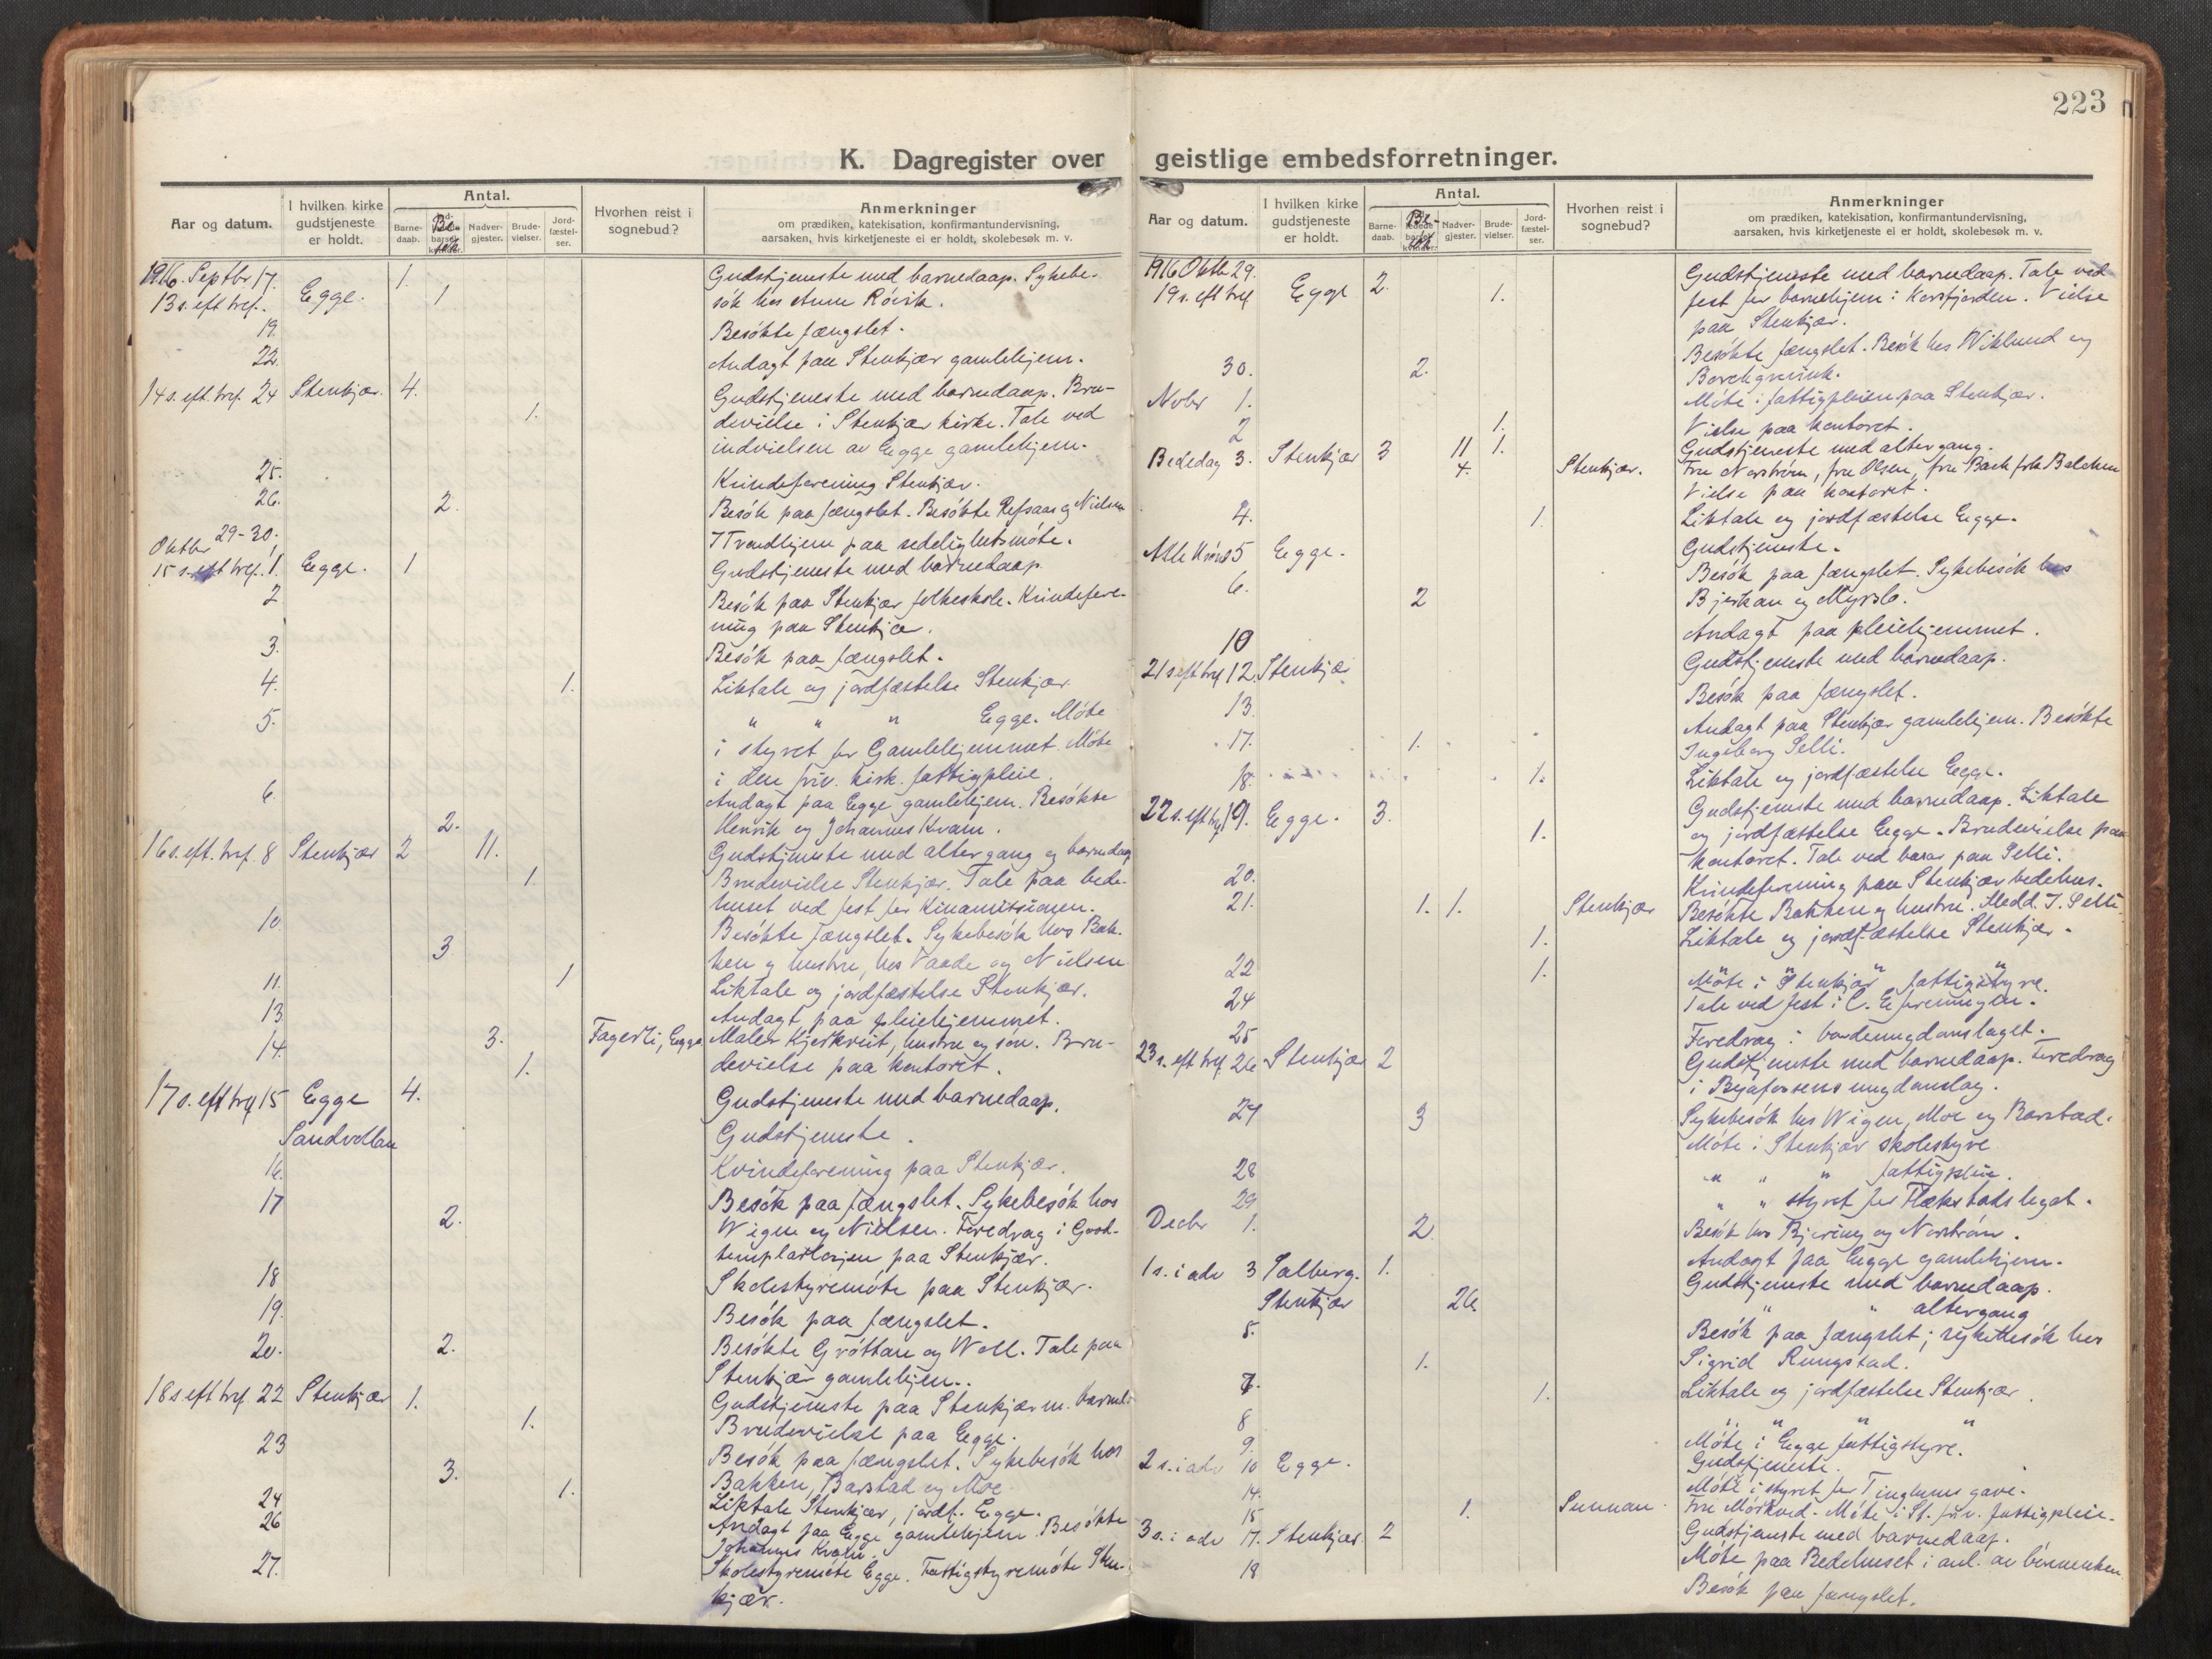 223
K. Dagregister over geistlige embedsforretninger.
Aar og datum. I hvilken kirke gudstjeneste er holdt. Antal. Barne-daab. Be-søk Nadver-gjester. Brude-vielser. Jord-fæstel-ser. Hvorhen reist i sognebud? Anmerkninger om prædiken, katekisation, konfirmantundervisning, aarsaken, hvis kirketjeneste ei er holdt, skolebesøk m. v.
1916. Septbr 17. 1. Gudstjeneste med barnedaap. Sykebe-
13 s. eft tref. Egge. 1 søk hos Anne Röisik.
19. Besøkte fængslet.
22. Andagt paa Stenkjær gamlehjem.
14 s. eft. tref. 24 Stenkjær. 4. Gudstjeneste med barnedaap. Bru-
1. devielse i Stenkjær kirke. Tale ved
indvielsen av Egge gamlehjem.
25. Kvindeforening Stenkjær.
26. 2. Besøk paa fængslet. Besøkte Refsaas og Nielsen
29-30. I Trondhjem paa sedelighetsmøte.
Oktbr
15 s. eft tref. 1. Egge. 1 Gudstjeneste med barnedaap
2 Besøk paa Stenkjær folkeskole. Kvindefore-
ning paa Stenkjær.
3. Besøk paa fængslet.
4. 1. Liktale og jordfæstelse Stenkjær
5. " " " Egge. Møte
i styret for Gamlehjemmet. Møte
i den friv. kirk. fattigpleie.
6. Andagt paa Egge gamlehjem. Besøkte
2. Henrik og Johannes Kvam.
16 s. eft. tref. 8 Stenkjær 2 11. Gudstjeneste med altergang og barnedaap
1. Brudevielse Stenkjær. Tale paa bede-
huset ved fest for Kinamissionen.
10. Besøkte fængslet. Sykebesøk hos Bak-
3 ken og hustru, hos Vaade og Nielsen
11. 1 Liktale og jordfæstelse Stenkjær.
13 Andagt paa pleiehjemmet.
14. 3. Fagerli, Egge Maler Kjerkreit, hustru og søn. Bru-
1. devielse paa kontoret.
17 s. eft tref 15 Egge 4. Gudstjeneste med barnedaap.
Sandvollan Gudstjeneste.
16. Kvindeforening paa Stenkjær.
17 Besøk paa fængslet. Sykebesøk hos
2. Wigen og Nielsen. Foredrag i Good-
templarlogen paa Stenkjær.
18 Skolestyremøte paa Stenkjær.
19. Besøk paa fængslet.
20. 2. Besøkte Grøttan og Woll. Tale paa
Stenkjær gamlehjem.
18 s. eft tref. 22 Stenkjær 1. Gudstjeneste paa Stenkjær m. barned.
1. Brudevielse paa Egge.
23 Besøk paa fængslet. Sykebesøk hos
3. Bakken, Barstad og Moe
24 1. Liktale Stenkjær, jordf. Egge.
26 Andagt paa Egge gamlehjem. Besøkte
Johannes Kvam.
27. Skolestyremøte Egge. Fattigstyremøte Sten-
kjær.
Aar og datum. I hvilken kirke gudstjeneste er holdt. Antal. Barne-daab. Be-søk Nadver-gjester. Brude-vielser. Jord-fæstel-ser. Hvorhen reist i sognebud? Anmerkninger om prædiken, katekisation, konfirmantundervisning, aarsaken, hvis kirketjeneste ei er holdt, skolebesøk m. v.
1916 Oktb 29. Gudstjeneste med barnedaap. Tale ved
19 s. eft tref Egge 2. 1. fest for barnehjem i Korsfjorden. Vielse
paa Stenkjær.
30. 2. Besøkte fængslet. Besøk hos Wiklund og
Borchgrevink.
Novbr 1. Møte i fattigpleien paa Stenkjær.
2 1. Vielse paa kontoret.
Bededag 3. Stenkjær 3 11 1. Gudstjeneste med altergang.
4. Stenkjær. Fru Norstrøm, fru Olsen, fru Back frk Balchen
Vielse paa kontoret.
4. 1. Liktale og jordfæstelse Egge.
5 Egge. Gudstjeneste.
6. 2 Besøk paa fængslet. Sykebesøk hos
Bjerkan og Myrslo.
10 Andagt paa pleiehjemmet.
21 s eft tref 12 Stenkjær Gudstjeneste med barnedaap.
13. Besøk paa fængslet.
17. 1. Andagt paa Stenkjær gamlehjem. Besøkte
Ingeborg Selli.
18. 1. Liktale og jordfæstelse Egge.
22 s. eft tref 19. Egge. 3. Gudstjeneste med barnedaap. Liktale
1. og jordfæstelse Egge. Brudevielse paa
kontoret. Tale ved basar paa Selli.
20. Kvindeforening paa Stenkjær bedehus.
21. 1. 1. Stenkjær Besøkte Bakken og hustru. Medd. I. Selli.
1. Liktale og jordfæstelse Stenkjær.
22 1. " " " "
Møte i Stenkjær fattigstyre.
24 Tale ved fest i C. E foreningen.
25 Foredrag i bondeungdomslaget.
23 s. eft tref. 26 Stenkjær 2 Gudstjeneste med barnedaap. Foredrag
i Byafossens ungdomslag.
27 3 Sykebesøk hos Wigen, Moe og Barstad.
Møte i Stenkjær skolestyre
28 " " " fattigpleie.
29 " " styret for Flækstads legat.
Decbr 1. 2. Besøk hos Bjering og Norstrøm.
Andagt paa Egge gamlehjem.
1 s. i adv 3 Salberg. 1. Gudstjeneste med barnedaap.
Stenkjær 26 " " altergang
5. Besøk paa fængslet; sykebesøk hos
1. Sigrid Rungstad.
7. 1. Liktale og jordfæstelse Stenkjær.
8 " " " "
9. Møte i Egge fattigstyre.
2 s. i adv 10 Egge. Gudstjeneste.
14. Møte i styret for Tinglums gave.
15 1. Sunnan. Fru Mørkved. Møte i St. friv. fattigpleie.
3 s. i adv 17. Stenkjær. 2 Gudstjeneste med barnedaap.
Møte paa Bedehuset i anl. av bønneuken
18 Besøk paa fængslet.